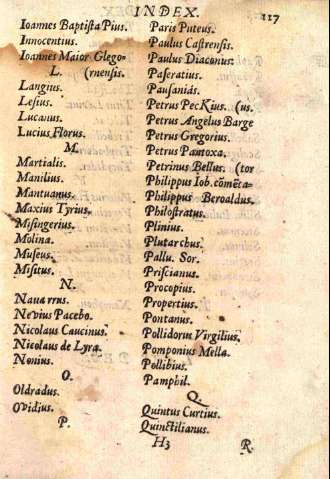 INDEX.
117
Ioannes Baptista Pius.
Innocentius.
Ioannes Maior Glego-
L. (rnensis.
Langius.
Lesius.
Lucanus.
Lucius Florus.
M.
Martialis.
Manilius.
Mantuanus.
Maxius Tyrius.
Misingerius.
Molina.
Museus.
Misitus.
N.
Nauarrus.
Nevius Pacebo.
Nicolaus Caucinus.
Nicolaus de Lyra.
Nonius.
O.
Oldradus.
Ovidius.
P.
Paris Puteus.
Paulus Castrensis.
Paulus Diaconus.
Paseratius.
Pausaniás.
Petrus Peckius. (us.
Petrus Angelus Barge
Petrus Gregorius.
Petrus Pantoxa.
Petrinus Bellus. (tor
Philippus Iob. cōmēca-
Philippus Beroaldus.
Philostratus.
Plinius.
Plutarchus.
Pallu. Sor.
Priscianus.
Procopius.
Propertius.
Pontanus.
Pollidorus Virgilius.
Pomponius Mella.
Pollibius.
Pamphil.
Q.
Quintus Curtius.
Quinctilianus.
H3 R.